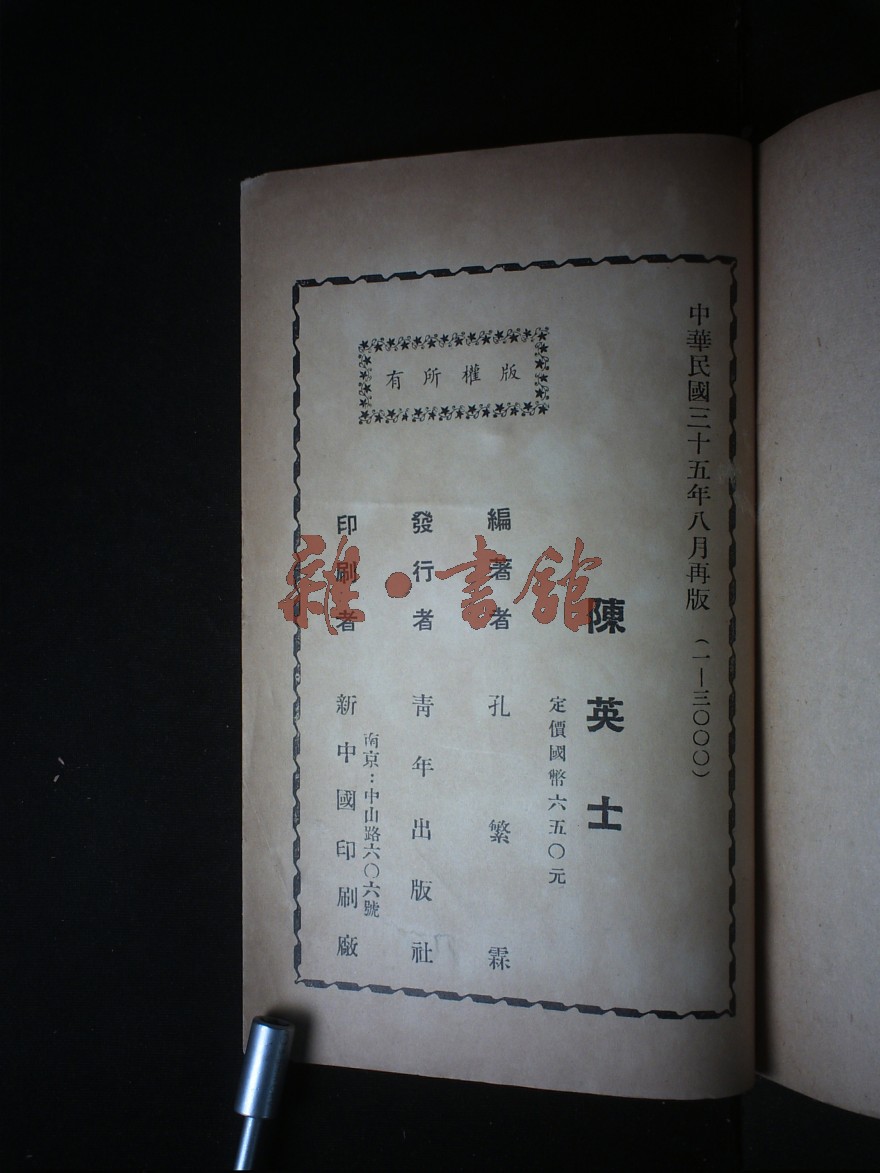 中華民國三十五年八月再版（一—三〇〇〇）
陳英士
定價國幣六五〇元
編著者 孔繁霖
發行者 青年出版社
南京：中山路六〇六號
印刷者 新中國印刷廠
版權所有
雜·書館